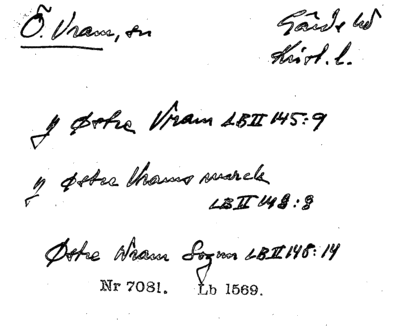 Ö. Vram, sn
Gärds hd
Krist. l.
y Østre Vram LB II 145:9
y Østre Vrams marck
LB II 148:8
Østre Wram Sogn LB II 146:14
Nr 7081. Lb 1569.